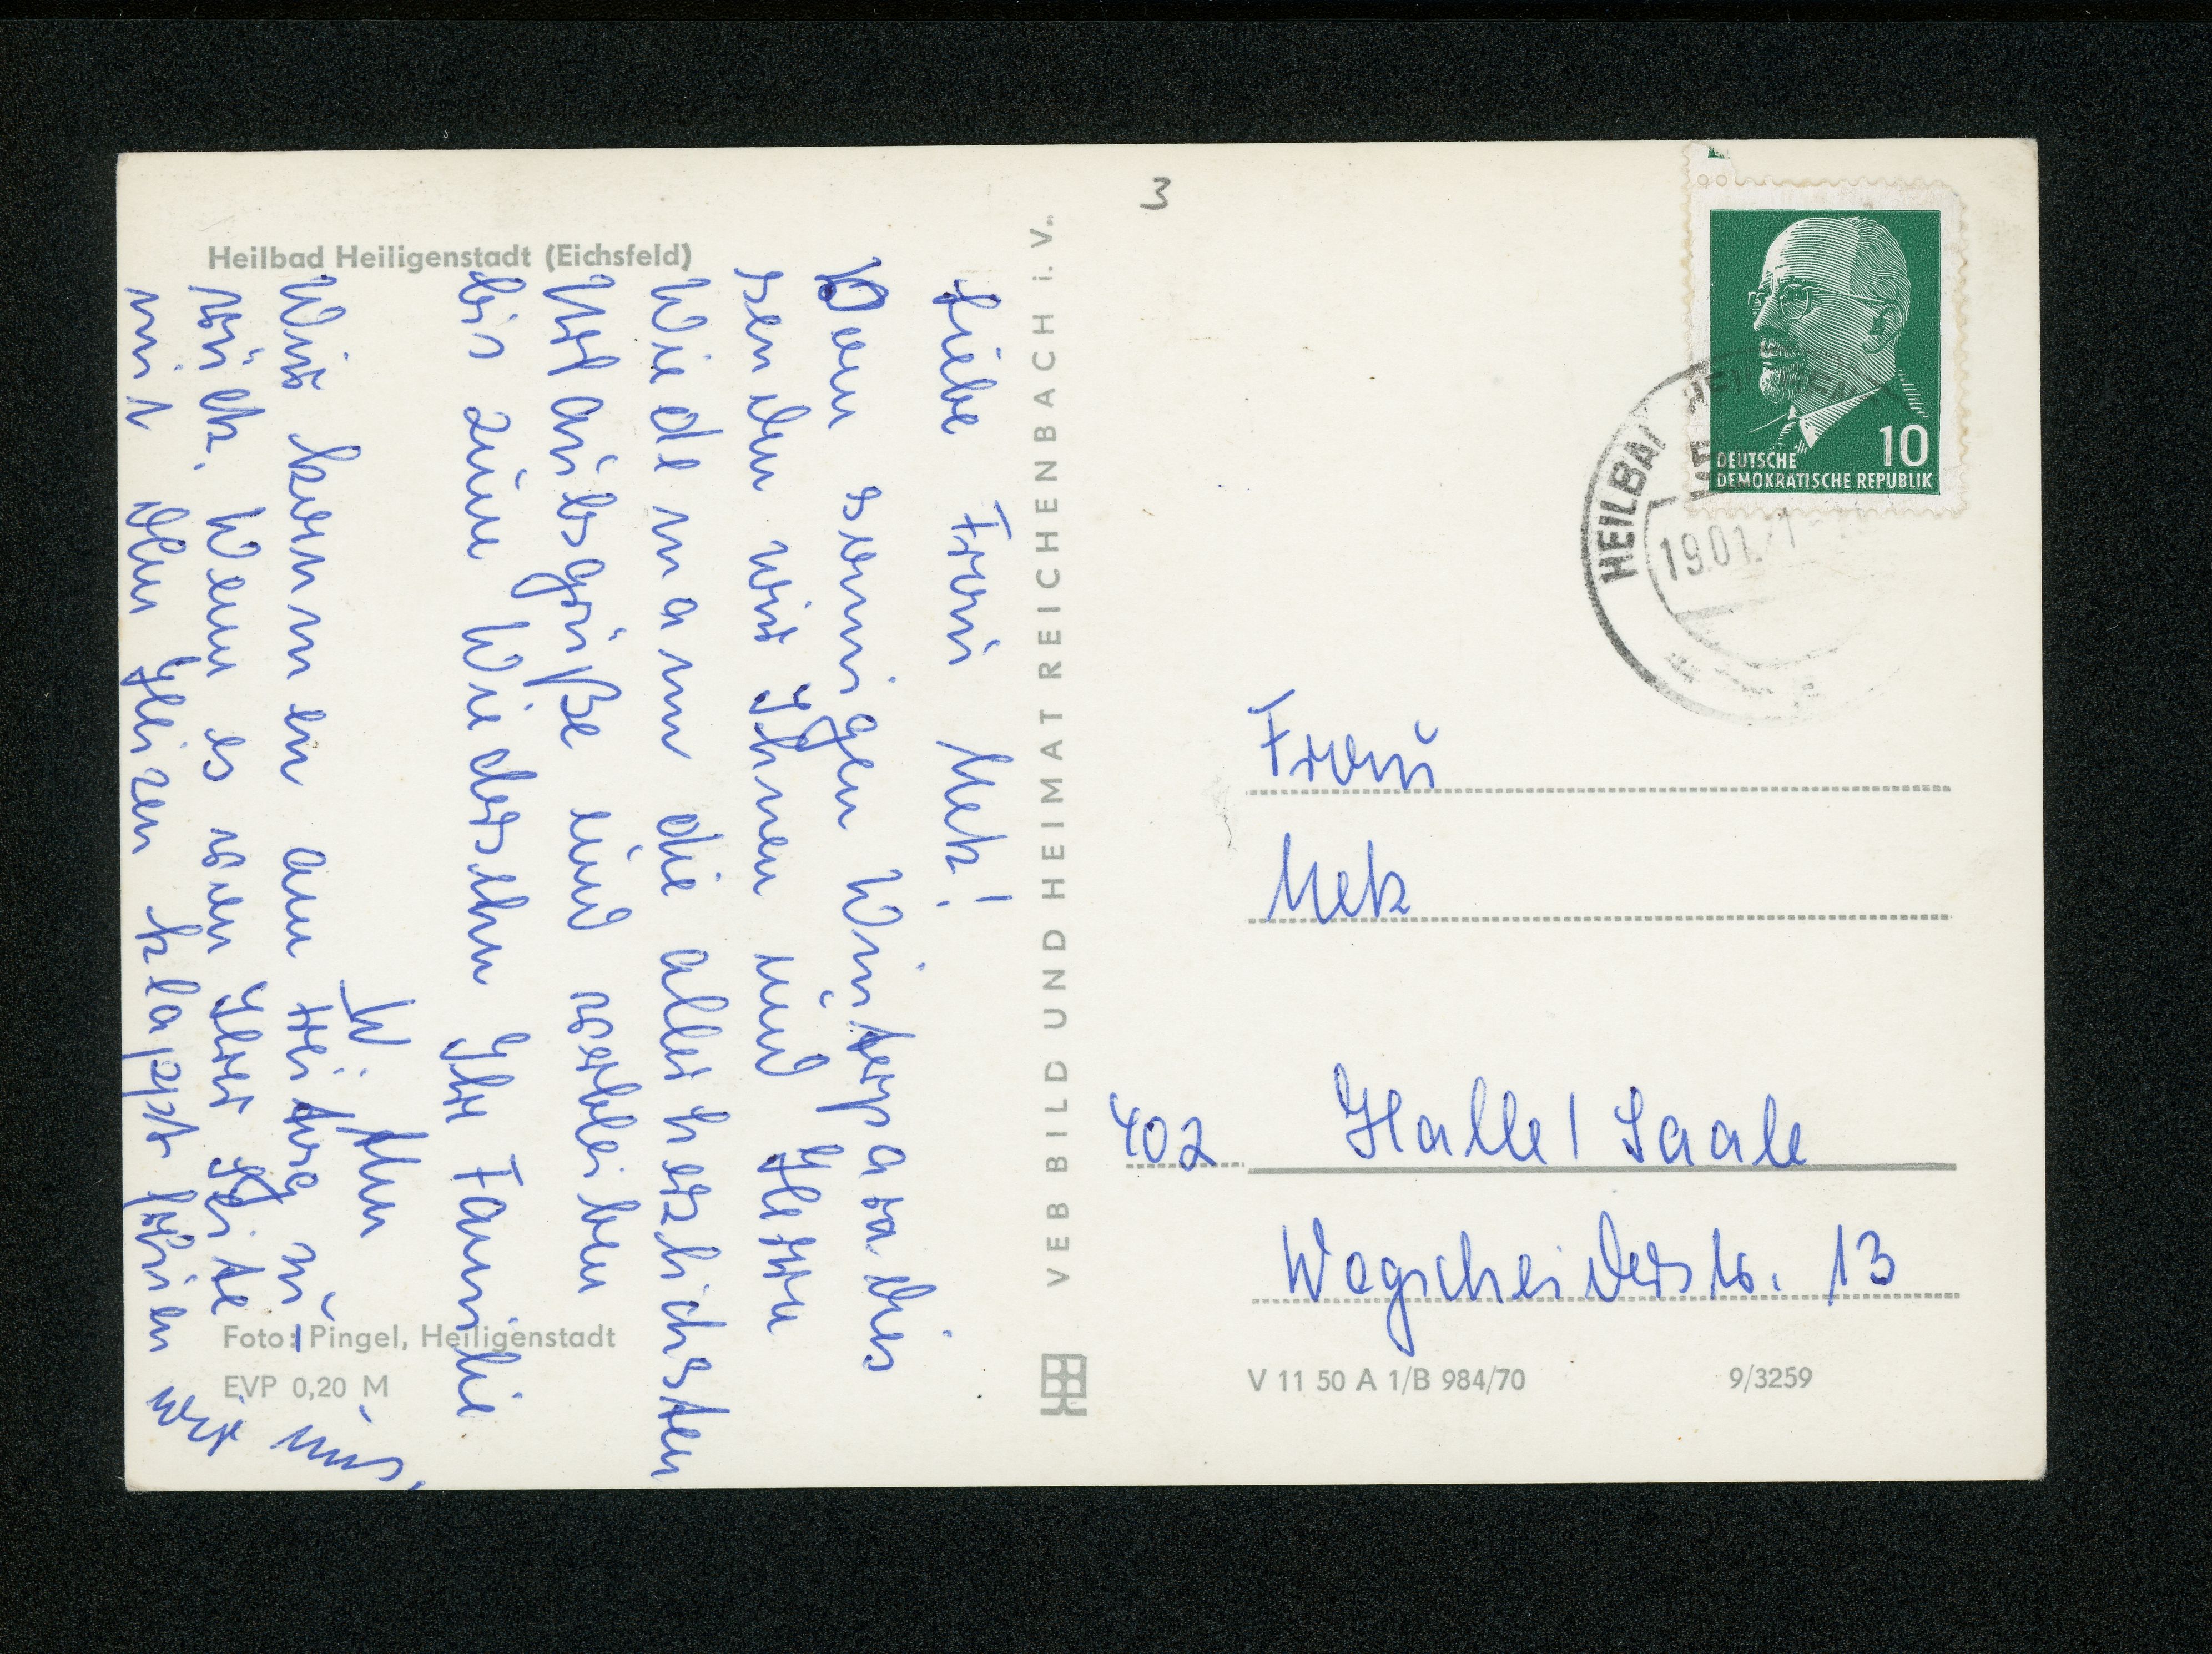 Heilbad Heiligenstadt (Eichsfeld)
Liebe Frau Mek!
Vom sonnigen Winterparadies
senden wir Ihnen und Herrn
Wiedemann die allerherzlichsten
Urlaubsgrüße und verbleiben
bis zum Wiedersehn Ihr Familie
Wir kommen am Heitrag zu-
rück. Wenn es von Ihrer Seite
mit dem Heizen klappt frören wir
uns.
Foto: Pingel, Heiligenstadt
EVP 0,20 M
VEB BILD UND HEIMAT REICHENBACH i. V.
3
10
DEUTSCHE
DEMOKRATISCHE REPUBLIK
HEILBA
19.01.71
Frau
Mek
402 Halle / Saale
Wegscheiderstr. 13
V 11 50 A 1/B 984/70 9/3259